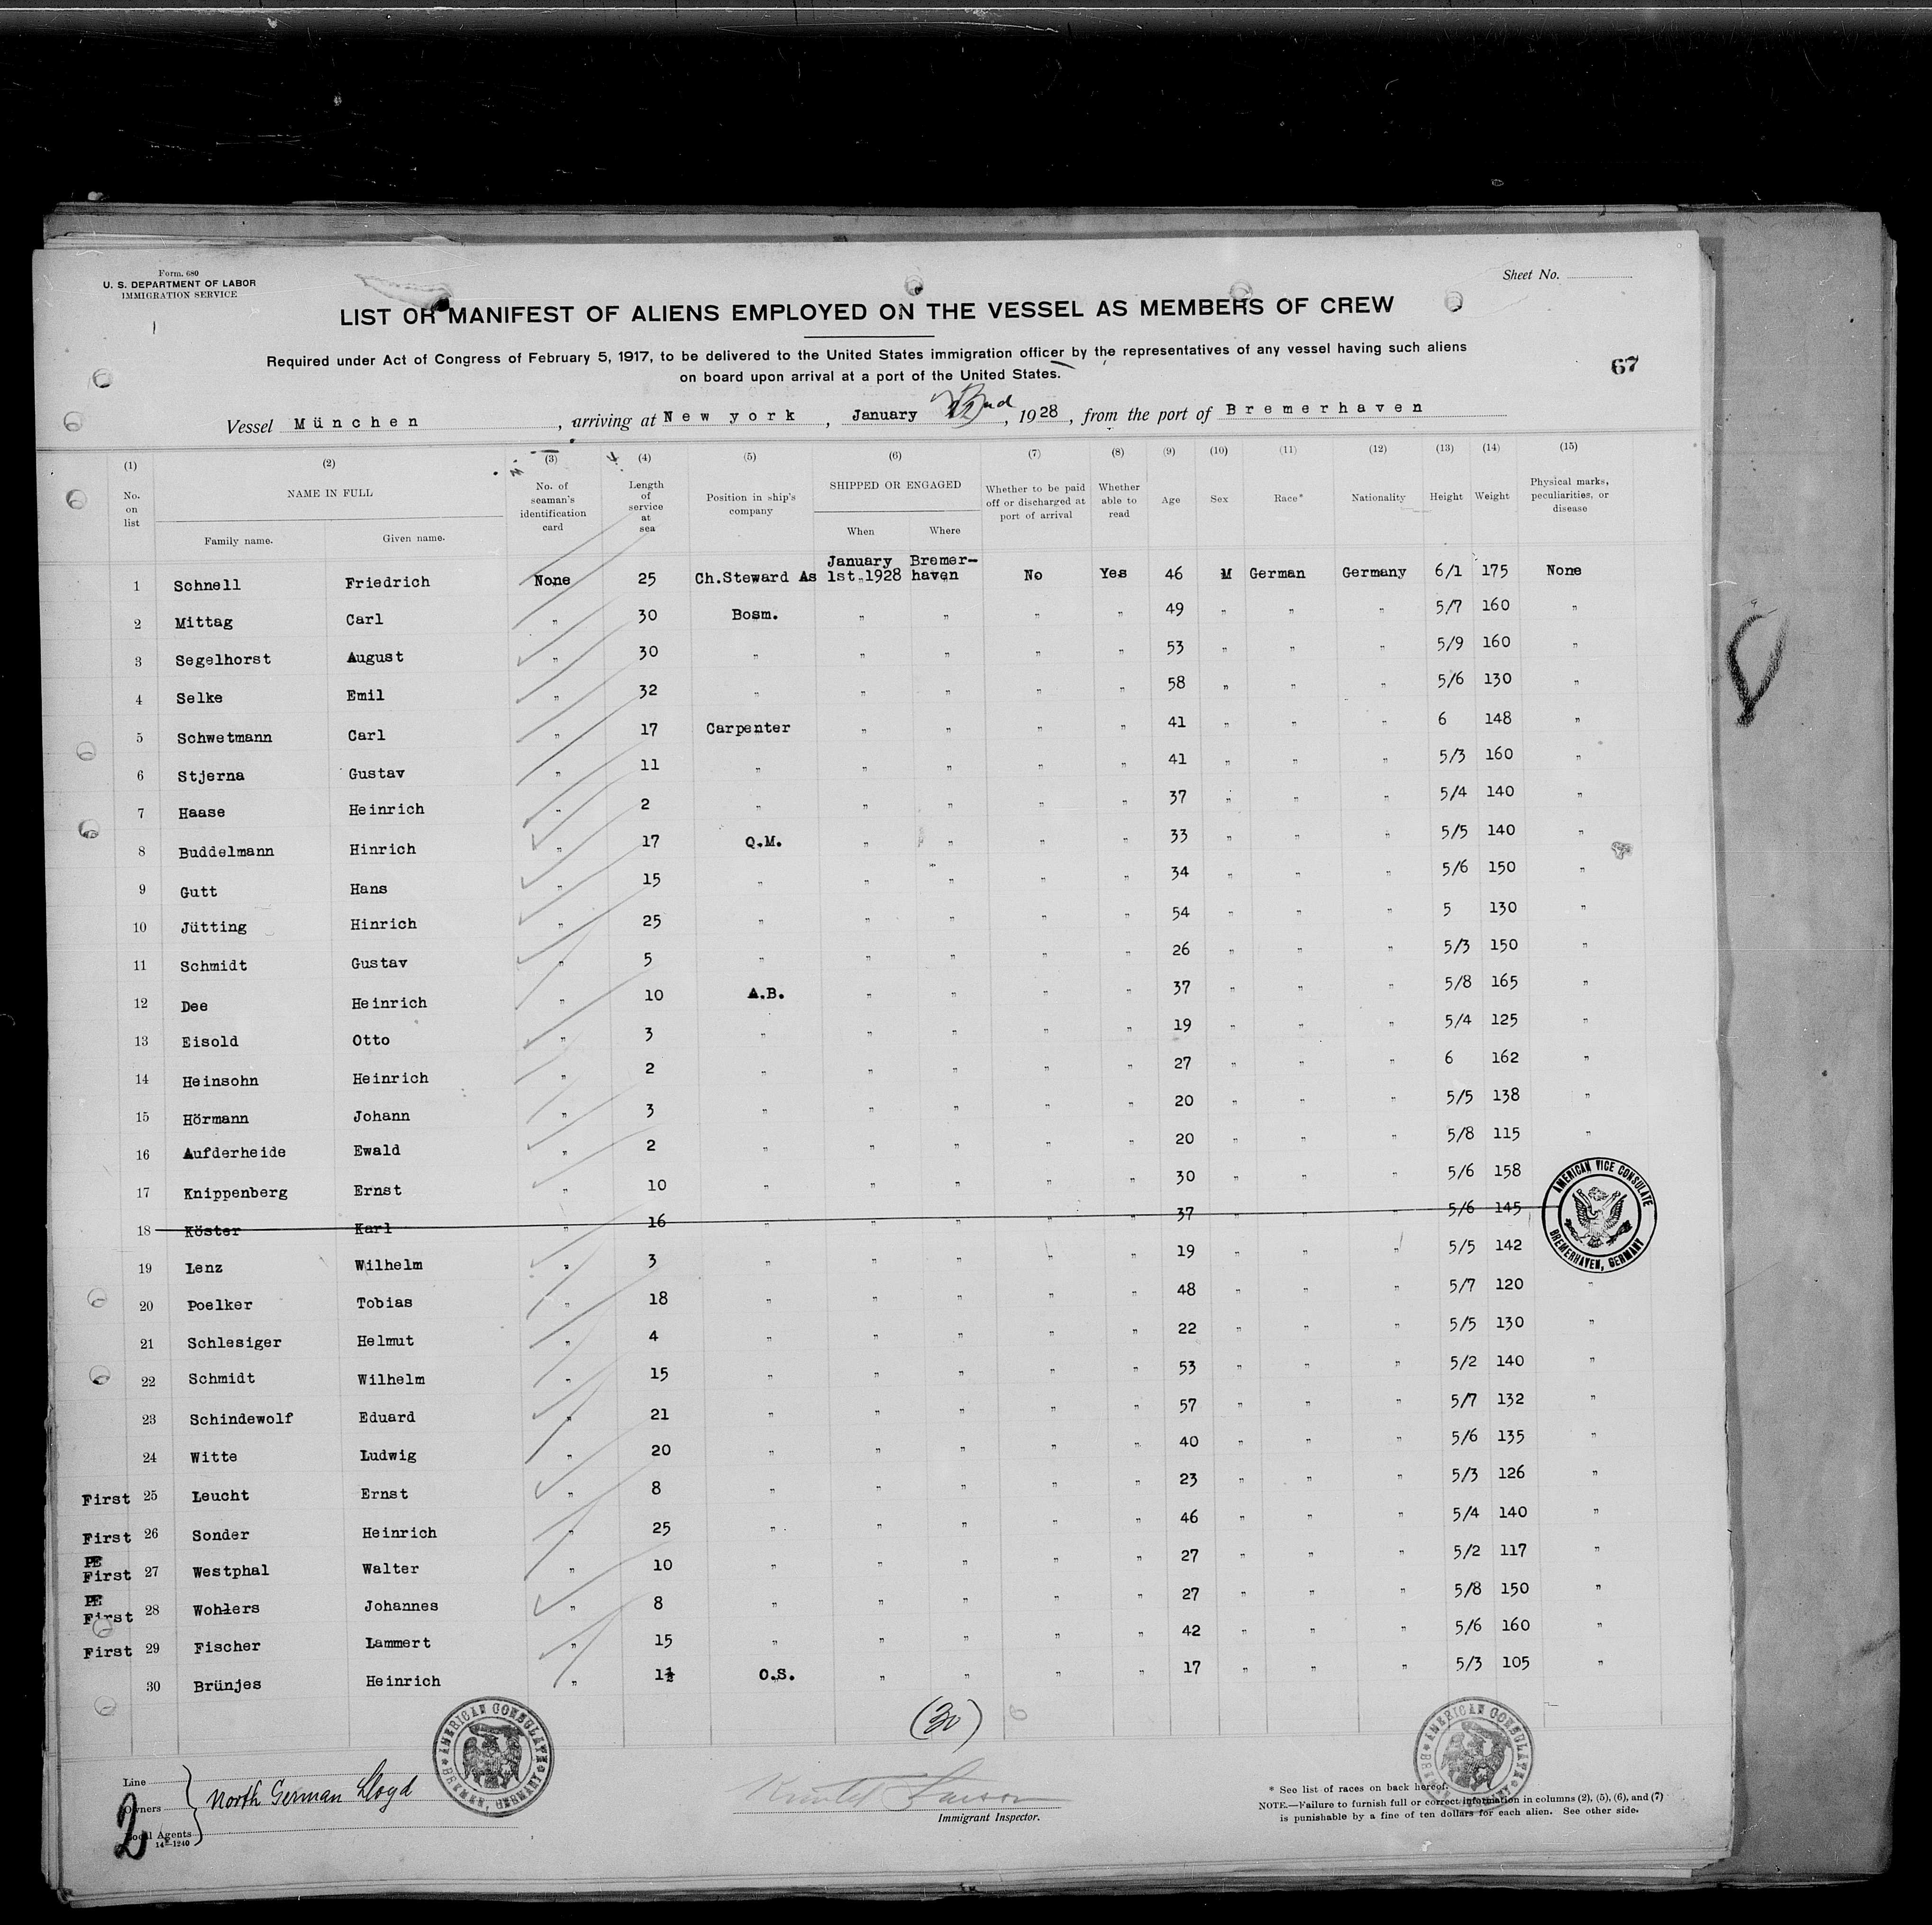 Form. 680
U. S. DEPARTMENT OF LABOR
IMMIGRATION SERVICE
Sheet No.
LIST OR MANIFEST OF ALIENS EMPLOYED ON THE VESSEL AS MEMBERS OF CREW
Required under Act of Congress of February 5, 1917, to be delivered to the United States immigration officer by the representatives of any vessel having such aliens
on board upon arrival at a port of the United States.
67
Vessel München, arriving at New york, January 1928, from the port of Bremerhaven
(1) (2) (3) (4) (5) (6) (7) (8) (9) (10) (11) (12) (13) (14) (15)
No. on list NAME IN FULL Family name. Given name. No. of seaman's identification card Length of service at sea Position in ship's company SHIPPED OR ENGAGED When Where Whether to be paid off or discharged at port of arrival Whether able to read Age Sex Race* Nationality Height Weight Physical marks, peculiarities, or disease
1 Schnell Friedrich None 25 Ch.Steward As January 1st.1928 Bremer-haven No Yes 46 M German Germany 6/1 175 None
2 Mittag Carl " 30 Bosm. " " " " 49 " " " 5/7 160 "
3 Segelhorst August " 30 " " " " " 53 " " " 5/9 160 "
4 Selke Emil " 32 " " " " " 58 " " " 5/6 130 "
5 Schwetmann Carl " 17 Carpenter " " " " 41 " " " 6 148 "
6 Stjerna Gustav " 11 " " " " " 41 " " " 5/3 160 "
7 Haase Heinrich " 2 " " " " " 37 " " " 5/4 140 "
8 Buddelmann Hinrich " 17 Q.M. " " " " 33 " " " 5/5 140 "
9 Gutt Hans " 15 " " " " " 34 " " " 5/6 150 "
10 Jütting Hinrich " 25 " " " " " 54 " " " 5 130 "
11 Schmidt Gustav " 5 " " " " " 26 " " " 5/3 150 "
12 Dee Heinrich " 10 A.B. " " " " 37 " " " 5/8 165 "
13 Eisold Otto " 3 " " " " " 19 " " " 5/4 125 "
14 Heinsohn Heinrich " 2 " " " " " 27 " " " 6 162 "
15 Hörmann Johann " 3 " " " " " 20 " " " 5/5 138 "
16 Aufderheide Ewald " 2 " " " " " 20 " " " 5/8 115 "
17 Knippenberg Ernst " 10 " " " " " 30 " " " 5/6 158
18 Köster Karl " 16 " " " " " 37 " " " 5/6 145
19 Lenz Wilhelm " 3 " " " " " 19 " " " 5/5 142
20 Poelker Tobias " 18 " " " " " 48 " " " 5/7 120 "
21 Schlesiger Helmut " 4 " " " " " 22 " " " 5/5 130 "
22 Schmidt Wilhelm " 15 " " " " " 53 " " " 5/2 140 "
23 Schindewolf Eduard " 21 " " " " " 57 " " " 5/7 132 "
24 Witte Ludwig " 20 " " " " " 40 " " " 5/6 135 "
First 25 Leucht Ernst " 8 " " " " " 23 " " " 5/3 126 "
First 26 Sonder Heinrich " 25 " " " " " 46 " " " 5/4 140 "
PE First 27 Westphal Walter " 10 " " " " " 27 " " " 5/2 117 "
PE First 28 Wohlers Johannes " 8 " " " " " 27 " " " 5/8 150 "
First 29 Fischer Lammert " 15 " " " " " 42 " " " 5/6 160 "
30 Brünjes Heinrich " 1½ O.S. " " " " 17 " " " 5/3 105 "
AMERICAN VICE CONSULATE
BREMERHAVEN, GERMANY
(30)
AMERICAN CONSULATE BREMEN, GERMANY
AMERICAN CONSULATE
Line
Owners
Local Agents
North German Lloyd
14—1240
2
Immigrant Inspector.
* See list of races on back hereof.
NOTE.—Failure to furnish full or correct information in columns (2), (5), (6), and (7)
is punishable by a fine of ten dollars for each alien. See other side.